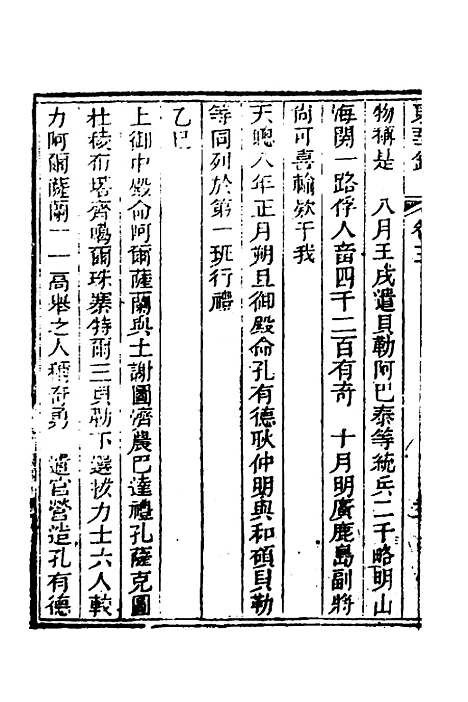 東華錄 卷三
物稱是 八月壬戌遣貝勒阿巴泰等統兵二千略明山
海関一路俘人畜四千二百有奇 十月明廣鹿島副將
尚可喜輸欵于我
天聰八年正月朔旦御殿命孔有德耿仲明與和碩貝勒
等同列於第一班行禮
乙巳
上御中殿命阿爾薩蘭與土謝圖濟農巴達禮孔薩克圖
杜稜布塔齊噶爾珠塞特爾三貝勒下選拔力士六人較
力阿爾薩蘭一一高舉之人稱奇勇 遣官營造孔有德